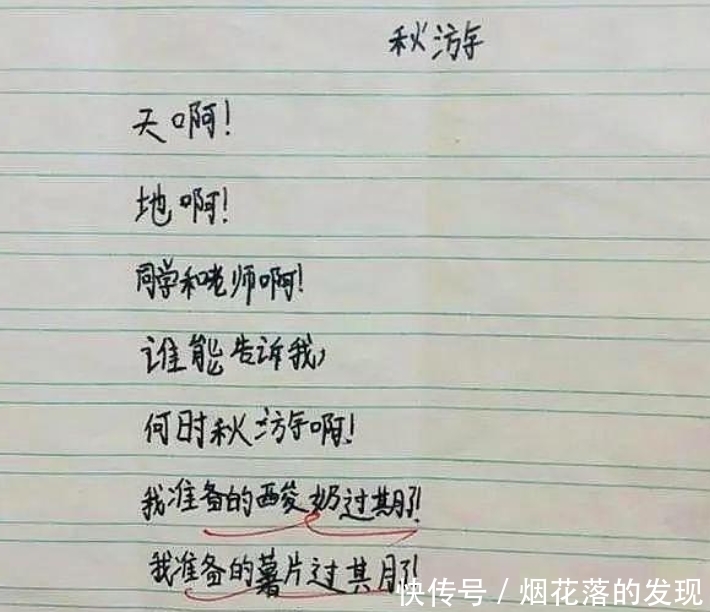 秋游
天啊！
地啊！
同学和老师啊！
谁能告诉我，
何时秋游啊！
我准备的酸奶过期了！
我准备的薯片过期了！
快传号 / 烟花落的发现